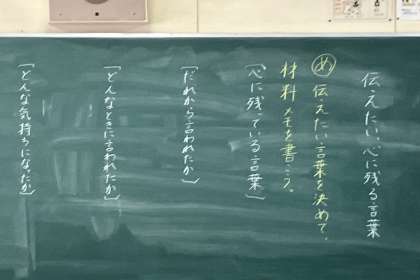 伝えたい、心に残る言葉
め 伝えたい言葉を決めて、
材料メモを書こう。
[心に残っている言葉]
[だれから言われたか]
[どんなときに言われたか]
[どんな気持ちになったか]